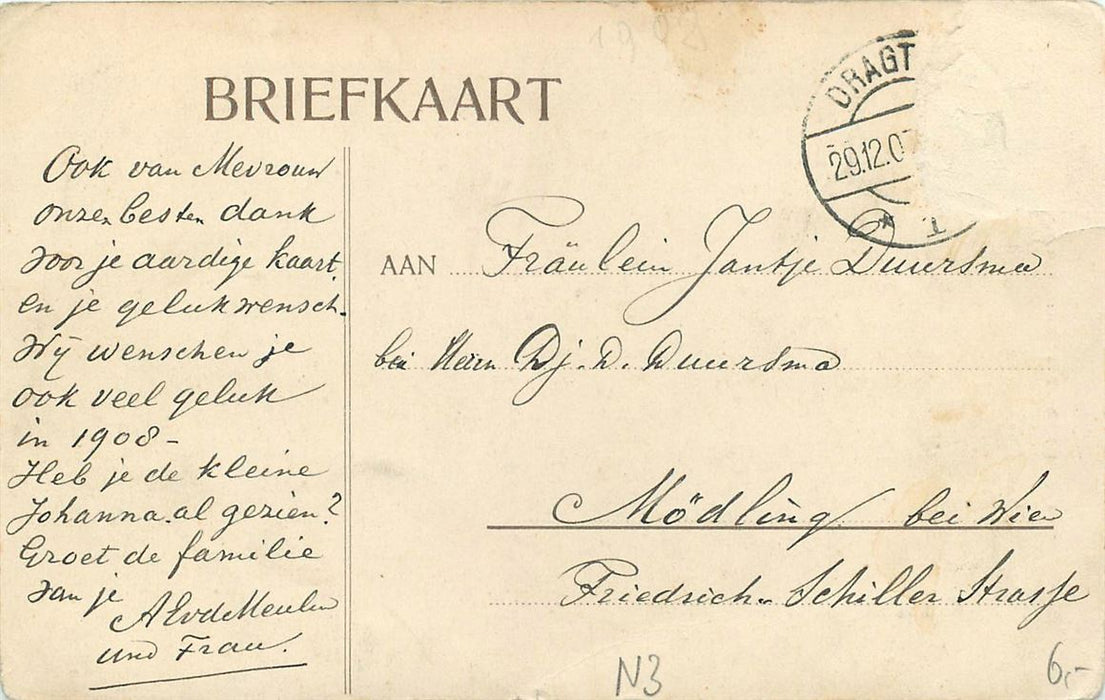 1908
BRIEFKAART
DRAGT
29.12.07
* 1
Ook van Mevrouw
onzen besten dank
voor je aardige kaart
en je gelukwensch.
Wij wenschen je
ook veel geluk
in 1908 -
Heb je de kleine
Johanna al gezien?
Groet de familie
van je
A E vd Meulen
und Frau.
AAN Fräulein Jantje Duursma
bei Herrn Dj. D. Duursma
Mödling bei Wien
Friedrich Schiller Strasse
N3
6,-